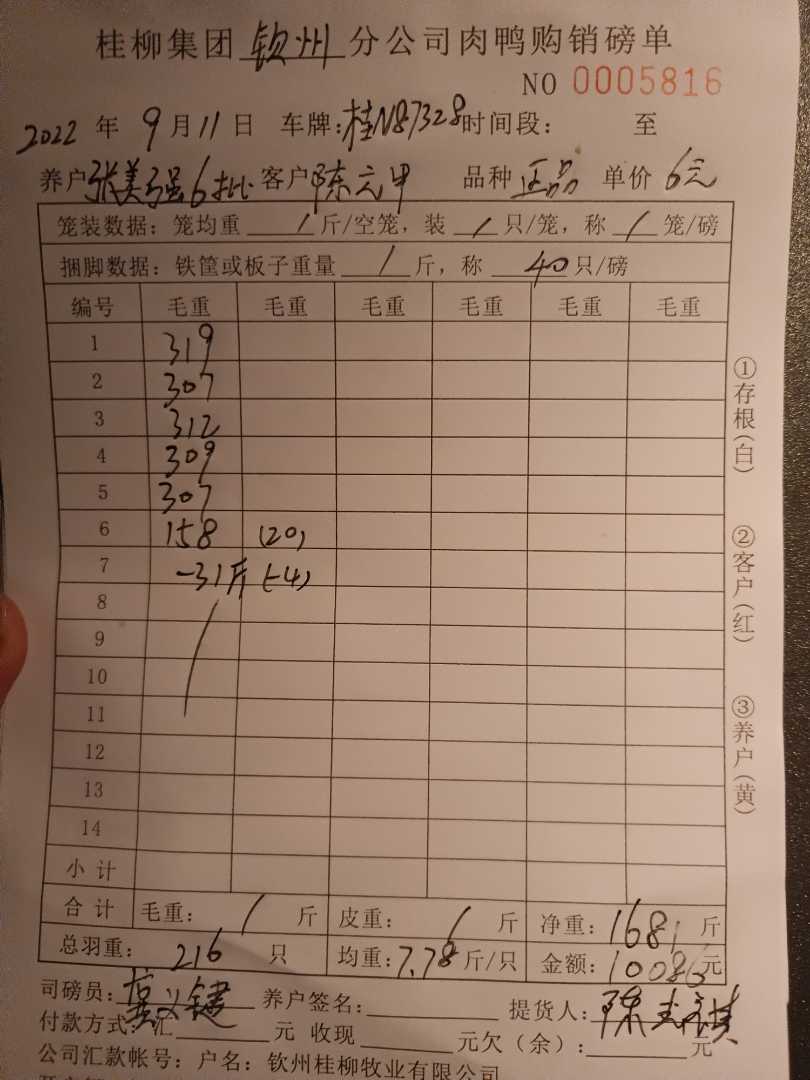 桂柳集团钦州分公司肉鸭购销磅单
NO 0005816
2022年9月11日 车牌:桂N87328时间段: 至
养户张美强6批客户陈元甲 品种正品 单价6元
笼装数据: 笼均重 / 斤/空笼, 装 / 只/笼, 称 / 笼/磅
捆脚数据: 铁筐或板子重量 / 斤, 称 40只/磅
编号 毛重 毛重 毛重 毛重 毛重 毛重
1 319
2 307
3 312
4 309
5 307
6 158 (20)
7 -31斤(-4)
8
9
10
11
12
13
14
小计
合计 毛重: / 斤 皮重: / 斤 净重: 1681 斤
总羽重: 216 只 均重: 7.78斤/只 金额: 10086元
司磅员: 养户签名: 提货人: 陈
付款方式: 汇 元 收现 元欠(余): 元
公司汇款帐号: 户名: 钦州桂柳牧业有限公司
①存根(白)
②客户(红)
③养户(黄)